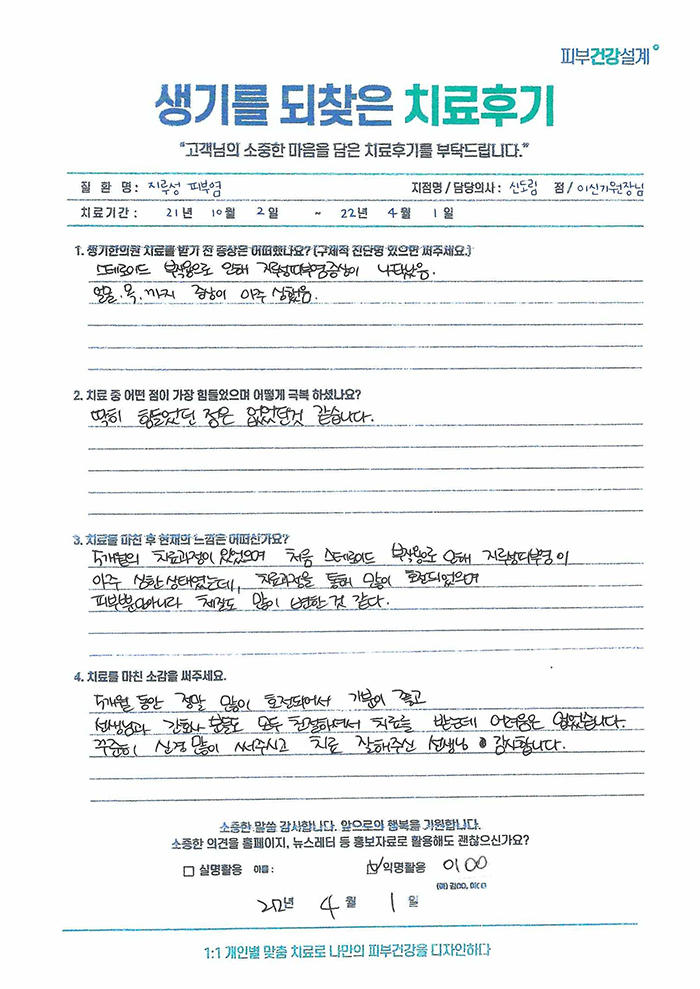 피부건강설계
생기를 되찾은 치료후기
"고객님의 소중한 마음을 담은 치료후기를 부탁드립니다."
질 환 명 : 지루성 피부염 지점명 / 담당의사 : 신도림 점 / 이신기원장님
치료기간 : 21년 10월 2일 ~ 22년 4월 1일
1. 생기한의원 치료를 받기 전 증상은 어떠했나요? (구체적 진단명 있으면 써주세요.)
스테로이드 부작용으로 인해 지루성피부염증상이 나타났음.
얼굴.목.까지 증상이 아주 심했음.
2. 치료 중 어떤 점이 가장 힘들었으며 어떻게 극복 하셨나요?
딱히 힘들었던 점은 없었던것 같습니다.
3. 치료를 마친 후 현재의 느낌은 어떠신가요?
5개월의 치료과정이 있었으며 처음 스테로이드 부작용으로 인해 지루성피부염이
아주 심한 상태였는데, 치료과정을 통해 많이 호전되었으며
피부뿐만아니라 체질도 많이 변한 것 같다.
4. 치료를 마친 소감을 써주세요.
5개월 동안 정말 많이 호전되어서 기분이 좋고
선생님과 간호사 분들도 모두 친절하셔서 치료를 받는데 어려움은 없었습니다.
꾸준히 신경 많이 써주시고 치료 잘해주신 선생님 감사합니다.
소중한 말씀 감사합니다. 앞으로의 행복을 기원합니다.
소중한 의견을 홈페이지, 뉴스레터 등 홍보자료로 활용해도 괜찮으신가요?
□ 실명활용 이름 : ☑ 익명활용 이OO
(예) 김OO, 이OO
22년 4월 1일
1:1 개인별 맞춤 치료로 나만의 피부건강을 디자인하다